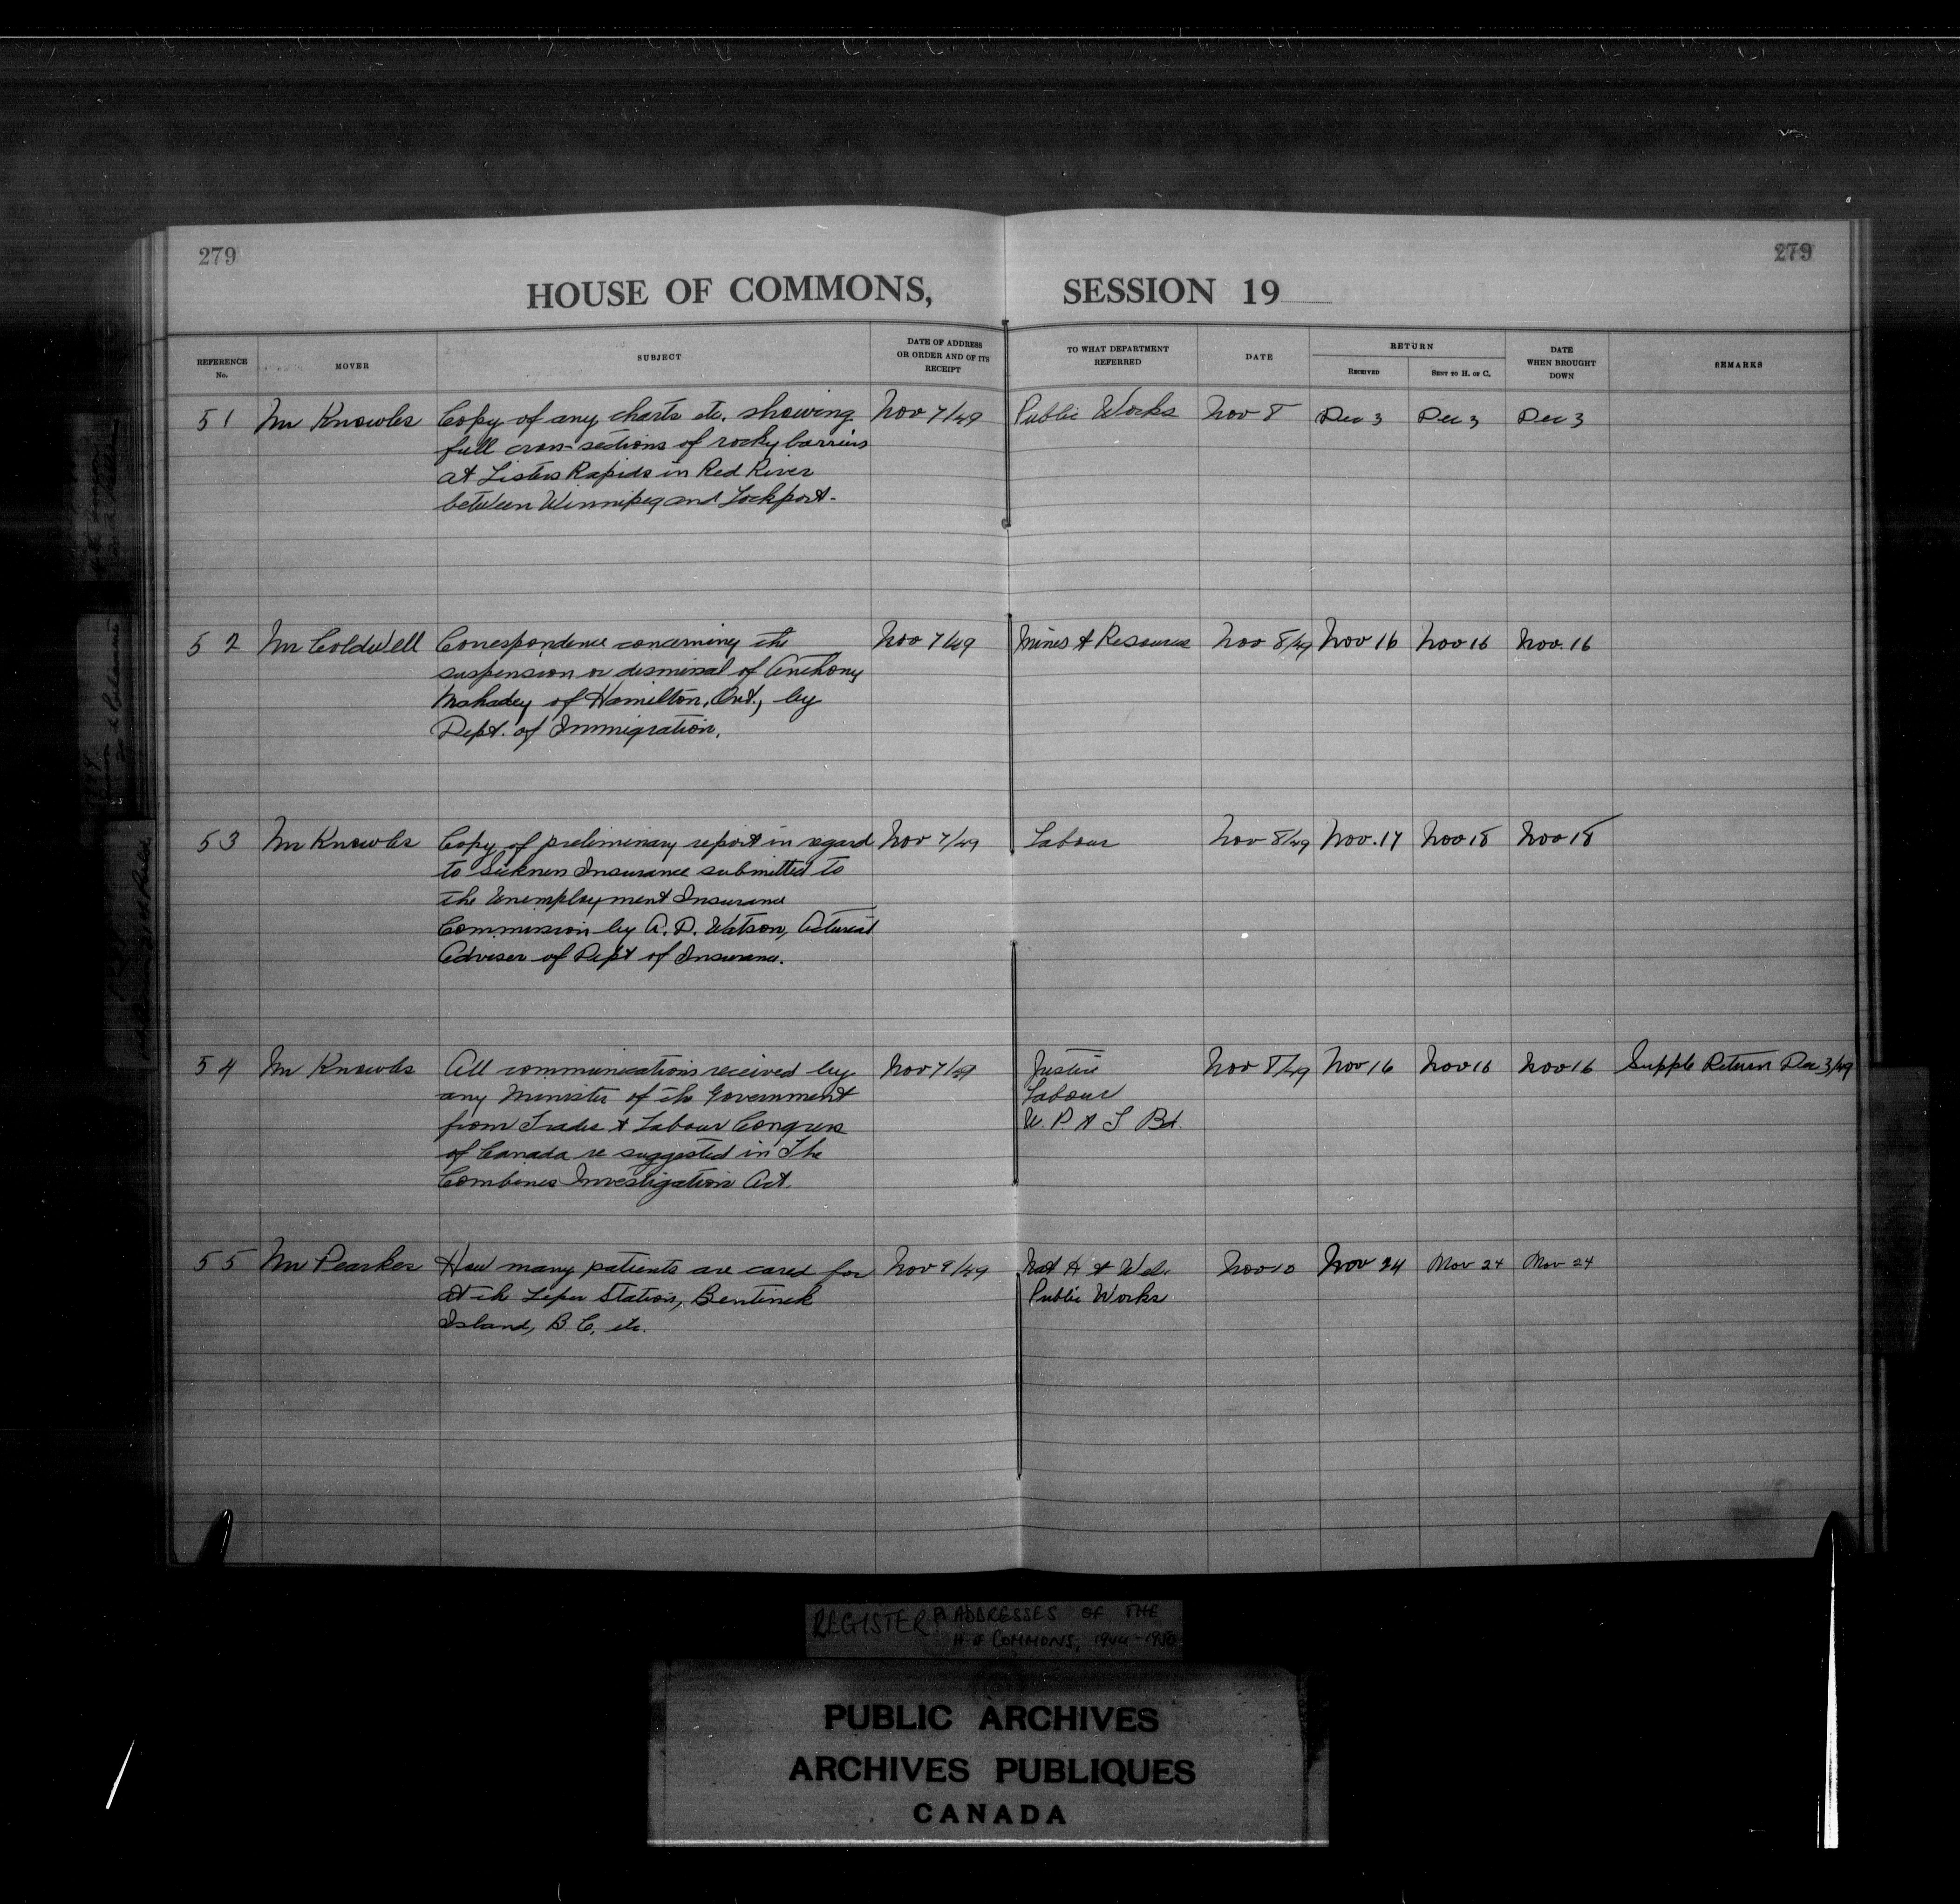 279
279
HOUSE OF COMMONS, SESSION 19
REFERENCE No.
MOVER
SUBJECT
DATE OF ADDRESS OR ORDER AND OF ITS RECEIPT
TO WHAT DEPARTMENT REFERRED
DATE
RETURN
RECEIVED
SENT TO H. OF C.
DATE WHEN BROUGHT DOWN
REMARKS
51 Mr Knowles Copy of any charts etc. showing Nov 7/49 Public Works Nov 8 Dec 3 Dec 3 Dec 3
full cross-sections of rocky barriers
at Listers Rapids in Red River
between Winnipeg and Lockport.
52 Mr Coldwell Correspondence concerning the Nov 7/49 Mines & Resources Nov 8/49 Nov 16 Nov 16 Nov. 16
suspension or dismissal of Anthony
of Hamilton, Ont., by
Dept. of Immigration.
53 Mr Knowles Copy of preliminary report in regard Nov 7/49 Labour Nov 8/49 Nov. 17 Nov 18 Nov 18
to Sickness Insurance submitted to
the Unemployment Insurance
Commission by A. D. Watson, Actuarial
Adviser of Dept of Insurance.
54 Mr Knowles All communications received by Nov 7/49 Justice Nov 8/49 Nov 16 Nov 16 Nov 16 Supple Return Dec 3/49
any Minister of the Government Labour
from Trades & Labour Congress W. P & T Bd.
of Canada re suggested in The
Combines Investigation Act.
55 Mr Pearkes How many patients are cared for Nov 9/49 Nat H & Wel. Nov 10 Nov 24 Nov 24 Nov 24
at the Leper Station, Bentinck Public Works
Island, B.C. etc.
REGISTER ADDRESSES OF THE
H. of COMMONS, 1944-1950
PUBLIC ARCHIVES
ARCHIVES PUBLIQUES
CANADA